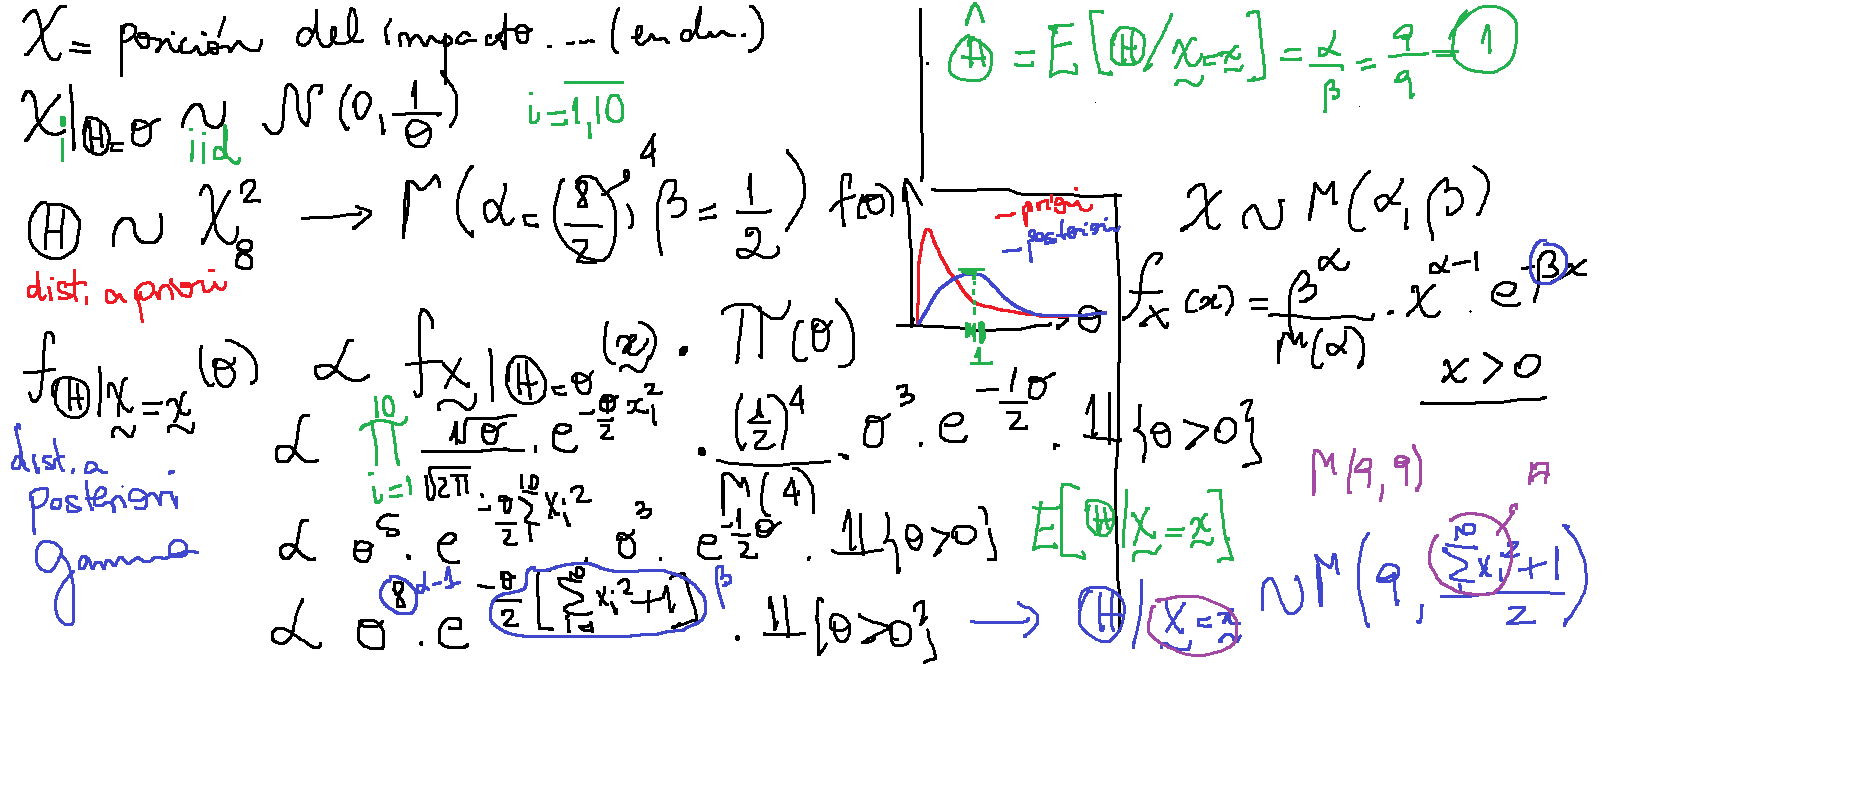 X = posición del impacto .... (en dm.)
X_i|Θ=θ ~ iid N(0, 1/θ) i=1,10
Θ ~ χ²_8 → Γ(α = (8/2), 4 β = 1/2)
dist. a priori
f_{Θ|X=x}(θ) α f_{X|Θ=θ}(x) · Π(θ)
dist. a posteriori
gamma
α ∏_{i=1}^{10} √θ/√2π · e^{-θ/2 x_i²} · (1/2)^4/Γ(4) · θ^3 · e^{-1/2 θ} · 1{θ>0}
α θ^5 · e^{-θ/2 Σ^{10} x_i²} · θ^3 · e^{-1/2 θ} · 1{θ>0}
α θ^8 α-1 · e^{-θ/2 [Σ^{10} x_i² + 1]} β · 1{θ>0} → Θ|X=x ~ Γ(9, (Σ^{10} x_i² + 1)/2)
Θ̂ = E[Θ/X=x] = α/β = 9/9 = 1
f(θ)
- priori
- posteriori
θ
1
X ~ Γ(α, β)
f_X(x) = β^α/Γ(α) · x^{α-1} · e^{-βx}
x > 0
Γ(9, 9)
E[Θ|X=x]